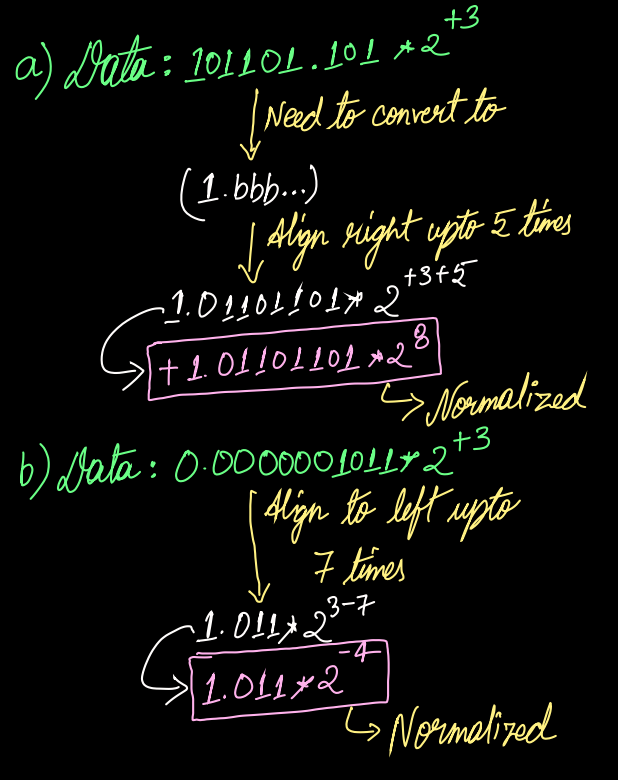 a) Data: 101101.101 * 2^{+3}
Need to convert to
(1.bbb...)
Align right upto 5 times
1.01101101 * 2^{+3+5}
+1.01101101 * 2^{8}
Normalized
b) Data: 0.0000001011 * 2^{+3}
Align to left upto
7 times
1.011 * 2^{3-7}
1.011 * 2^{-4}
Normalized